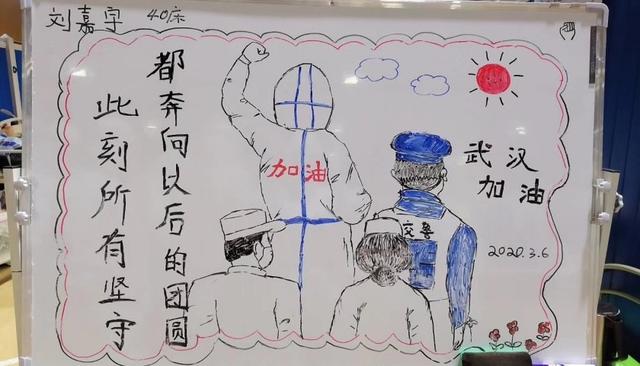 刘嘉宇 40床
此刻所有坚守
都奔向以后的团圆
加油
交警
武汉
加油
2020.3.6